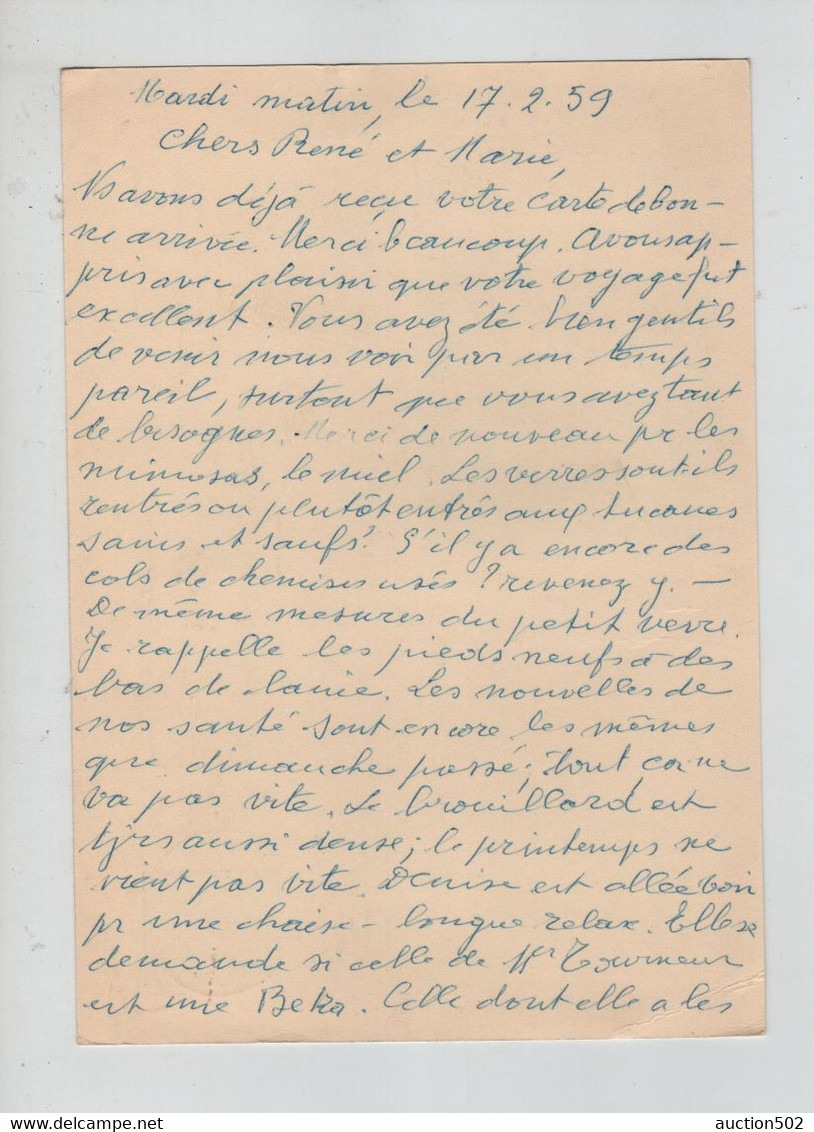 Mardi matin, le 17.2.59
Chers René et Marie,
Ns avons déjà reçu votre carte de bon-
ne arrivée. Merci beaucoup. Avons ap-
pris avec plaisir que votre voyage fut
excellent. Vous avez été bien gentils
de venir nous voir par un temps
pareil, surtout que vous avez tant
de besognes. Merci de nouveau pr les
mimosas, le miel. Les verres sont-ils
rentrés ou plutôt entrés aux
sains et saufs? S'il y a encore des
cols de chemises usés? revenez y. -
De même mesures du petit verre.
Je rappelle les pieds neufs à des
bas de laine. Les nouvelles de
nos santé sont encore les mêmes
que dimanche passé; tout ça ne
va pas vite. Le brouillard est
tjrs aussi dense; le printemps ne
vient pas vite. Denise est allée voir
pr une chaise-longue relax. Elle se
demande si celle de Mr Tourneur
est une Beka. Celle dont elle a les
auction502